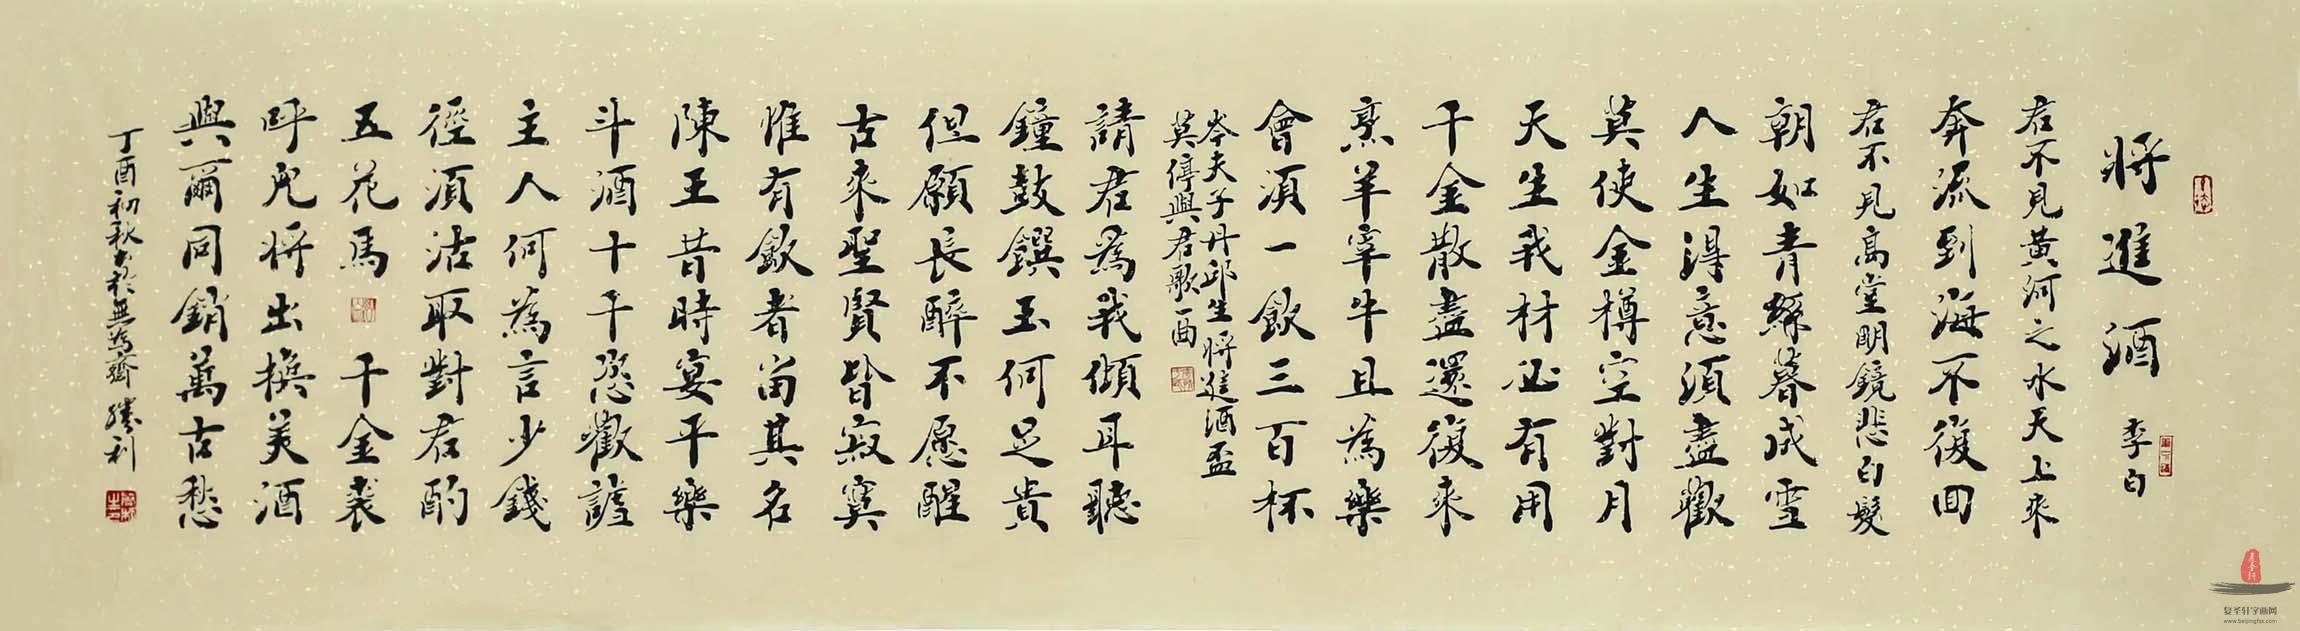 將進酒
李白
君不見黃河之水天上來
奔流到海不復回
君不見高堂明鏡悲白髮
朝如青絲暮成雪
人生得意須盡歡
莫使金樽空對月
天生我材必有用
千金散盡還復來
烹羊宰牛且為樂
會須一飲三百杯
岑夫子丹邱生將進酒盃
莫停與君歌一曲
請君為我傾耳聽
鐘鼓饌玉何足貴
但願長醉不愿醒
古來聖賢皆寂寞
惟有飲者留其名
陳王昔時宴平樂
斗酒十千恣歡謔
主人何為言少錢
徑須沽取對君酌
五花馬千金裘
呼兒將出換美酒
與爾同銷萬古愁
丁酉初秋書於無為齋 勝利
复圣轩字画网
www.beijingfsx.com